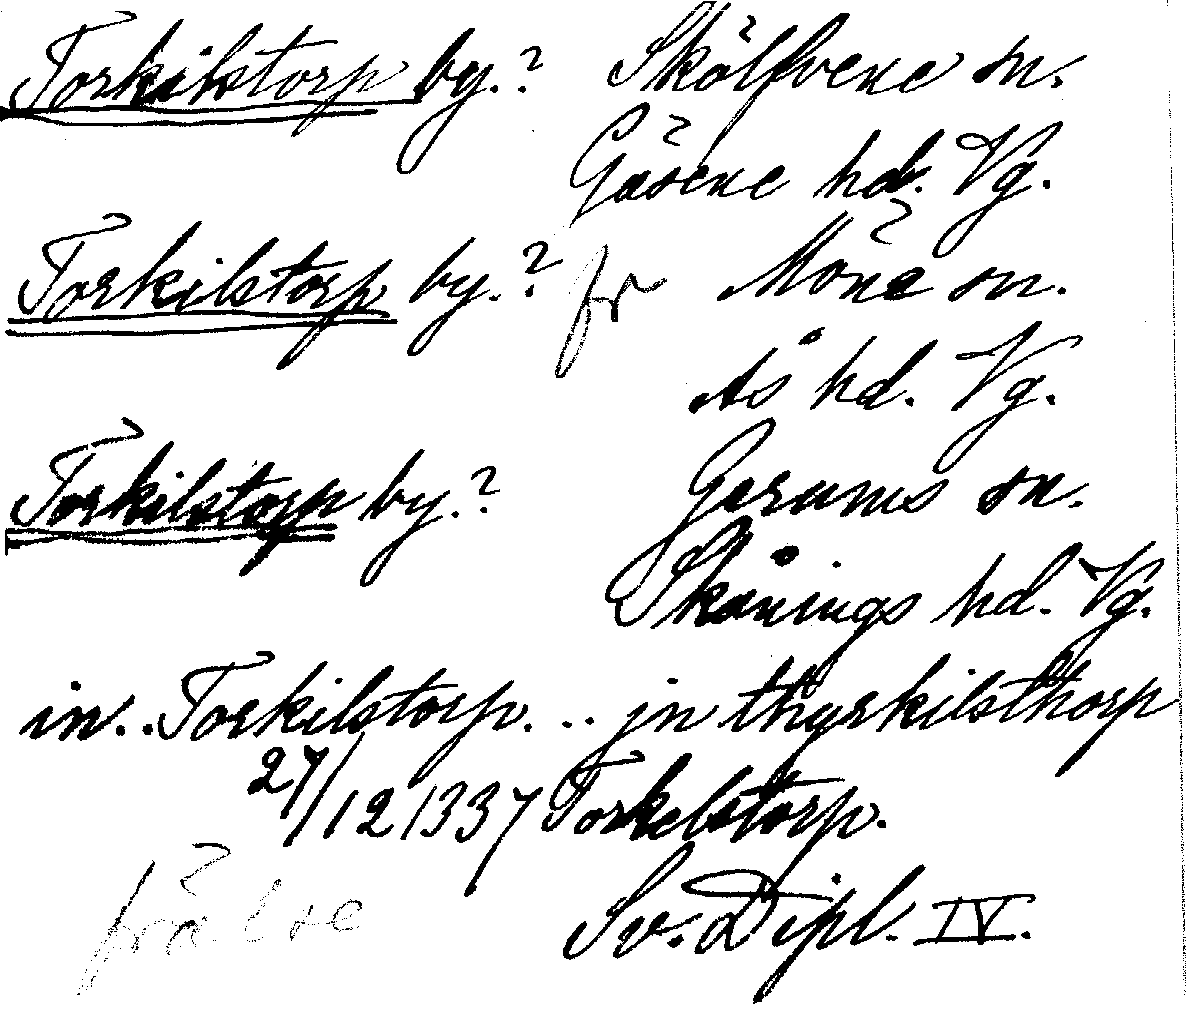 Torkilstorp by.? Skölfvene sn.
Gäsene hd. Vg.
Torkilstorp by.? fr Möne sn.
Ås hd. Vg.
Torkilstorp by.? Gerums sn.
Skånings hd. Vg.
in.. Torkilstorp. .. jn thyrkilsthorp
27/12 1337 Torkelstorp.
frälse Sv. Dipl. IV.